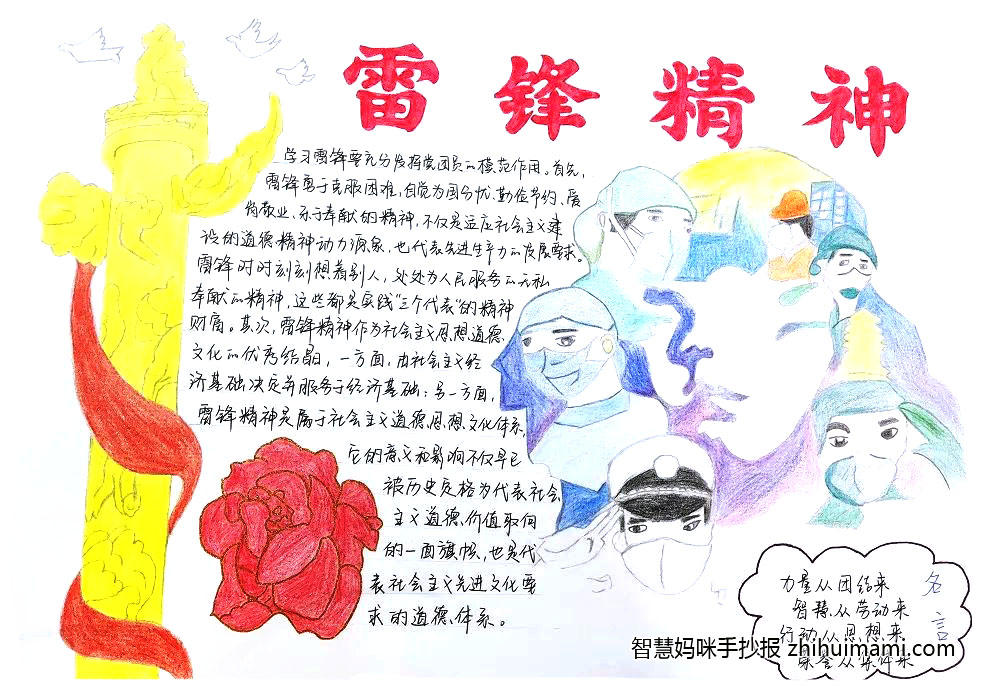 雷锋精神
学习雷锋要充分发挥党团员的模范作用。首先,
雷锋勇于克服困难,自觉为国分忧、勤俭节约、爱
岗敬业、乐于奉献的精神,不仅是适应社会主义建
设的道德精神动力源泉,也代表先进生产力的发展要求。
雷锋时时刻刻想着别人,处处为人民服务的无私
奉献的精神,这些都是实践“三个代表”的精神
财富。其次,雷锋精神作为社会主义思想道德、
文化的优秀结晶,一方面,由社会主义经
济基础决定并服务于经济基础;另一方面,
雷锋精神是属于社会主义道德思想文化体系,
它的意义和影响不仅早已
被历史定格为代表社会
主义道德价值取向
的一面旗帜,也是代
表社会主义先进文化要
求的道德体系。
名言
力量从团结来
智慧从劳动来
行动从思想来
荣誉从集体来
智慧妈咪手抄报 zhihuimami.com